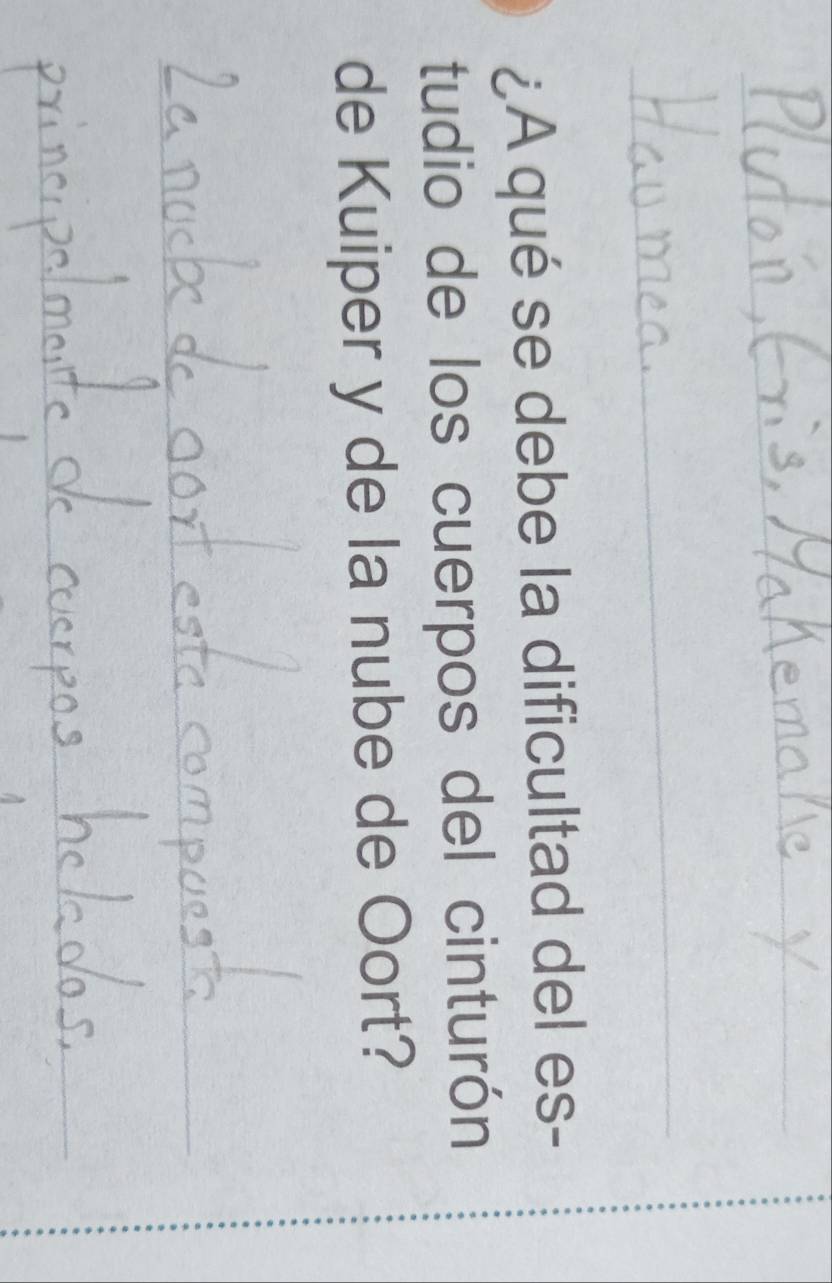 Plutón, Eris, Makemake y
Haumea.
¿A qué se debe la dificultad del es-
tudio de los cuerpos del cinturón
de Kuiper y de la nube de Oort?
La nube de oort esta compuesta
principalmente de cuerpos helados.